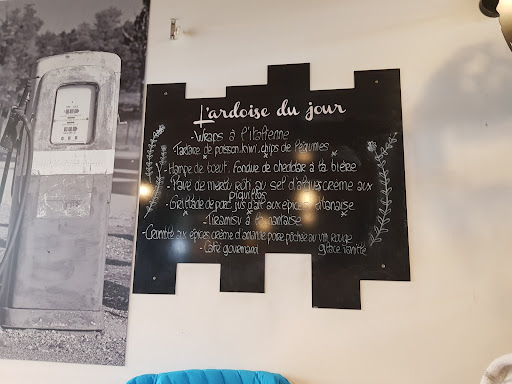 L'ardoise du jour
- Wraps à l'italienne
- Tartare de poisson kiwi, chips de légumes
- Hampe de boeuf, fondue de cheddar à la bière
- Pavé de merlu rôti au sel d'algues crème aux
piquillos
- Grillade de porc, jus d'ail aux épices
- Tiramisu à la nantaise
- Crumble aux épices crème d'amande poire pochée au vin rouge
- Café gourmand glace vanille